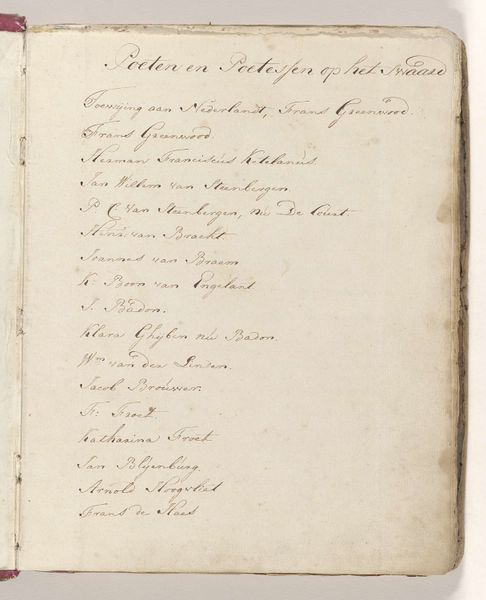 Poeten en Poetessen op het
Toewijing aan Nederlandt, Frans Greenwood.
Frans Greenwood.
Herman Franciscus Ketelanus
Jan Willem van Steenbergen.
P. C. van Steenbergen, nu De Court.
Henr: van Bracht.
Joannes van Braam
K: Boon van Engelant
J. Badon.
Klara Ghijben nu Badon.
Wm van der Linden.
Jacob Brouwer.
F: Froet
Katharina Froet
Jan Blijenburg.
Arnold Hoogvliet
Frans de Haes